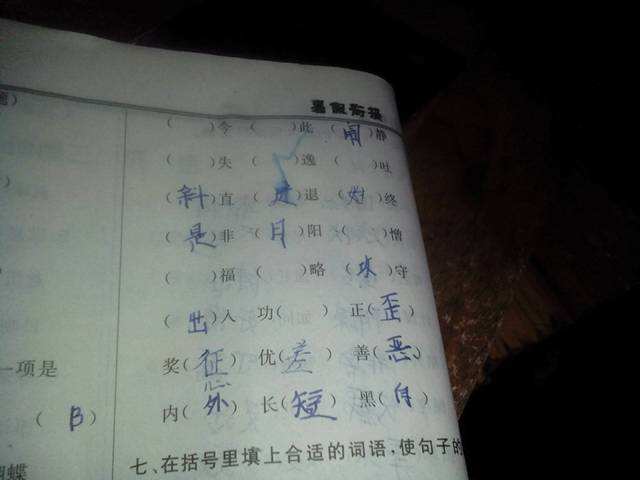 暑假衔接
( )今 ( )此 (闹)静
( )失 ( )逸 ( )吐
(斜)直 (进)退 (始)终
(是)非 (月)阳 ( )憎
( )福 ( )略 ( )守
(出)入 功( ) 正(歪)
奖(惩) 优(差) 善(恶)
内(外) 长(短) 黑(白)
七、在括号里填上合适的词语,使句子的
一项是
(B)
蝶